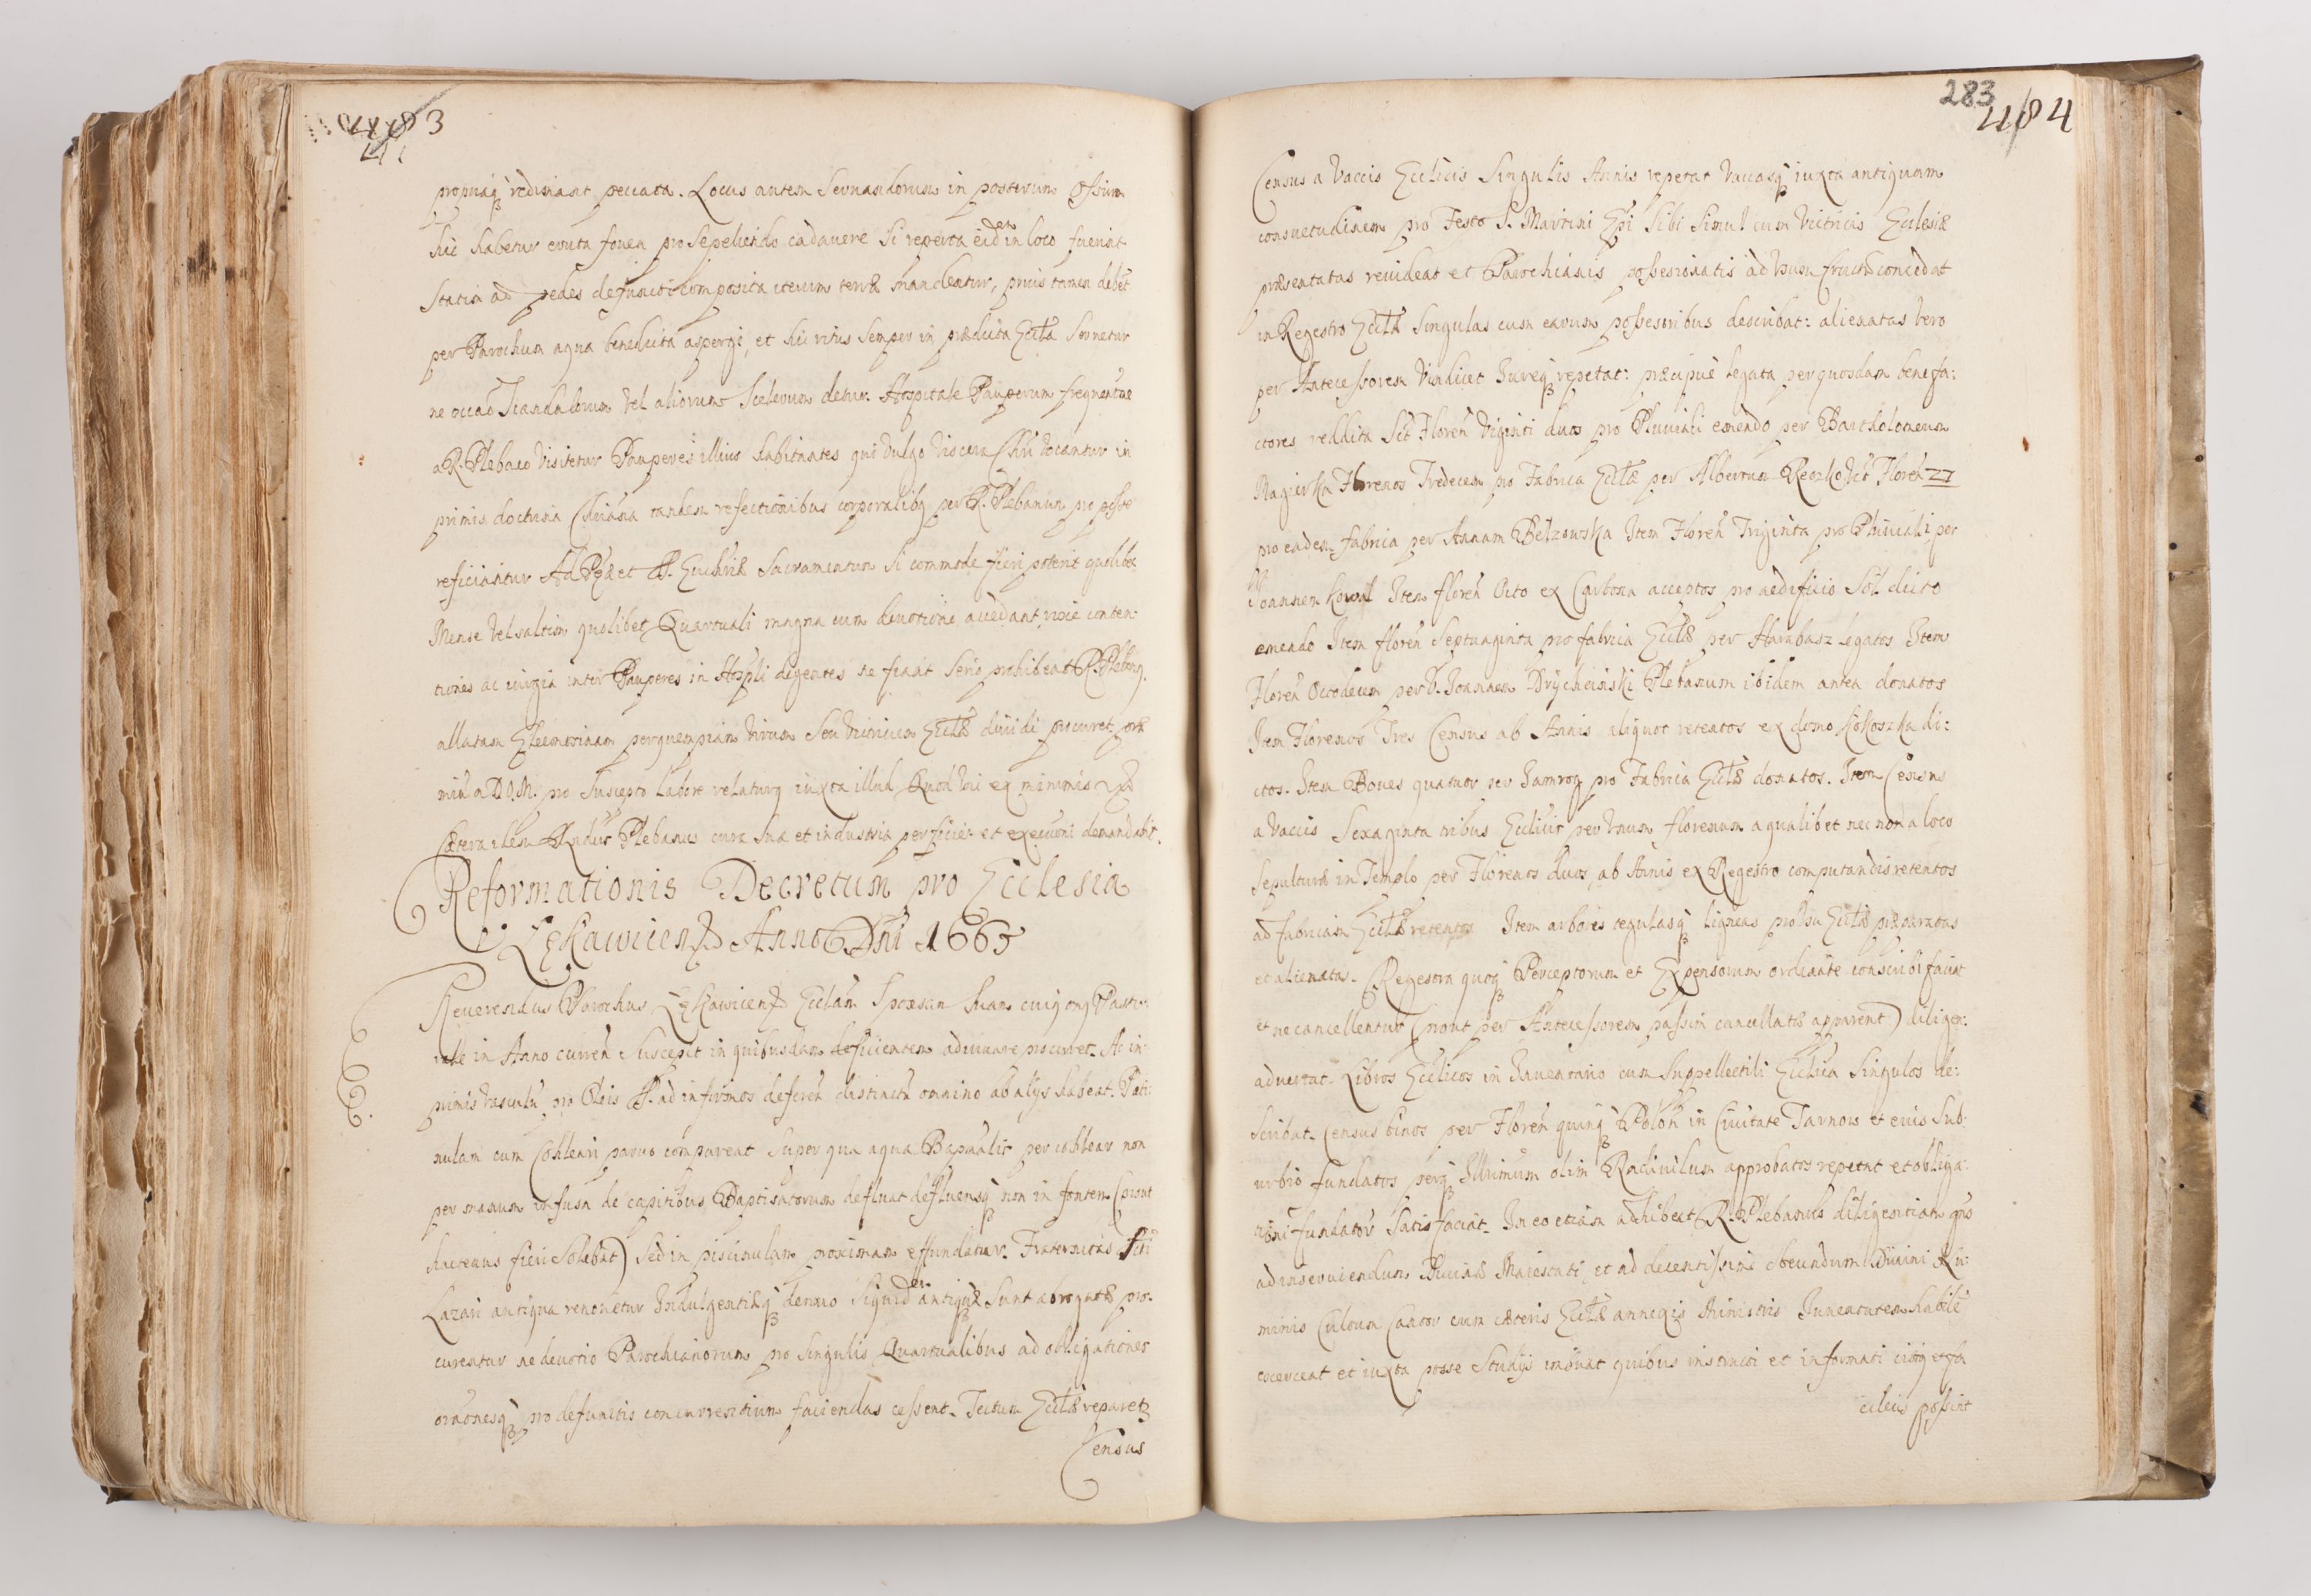 483
propriaq redimant peccata. Locus autem Servandorum in posterum Ossium
hic habetur eruta fovea pro sepeliendo cadavere si reperta eidem in loco fuerint
statim ad pedes defuncti composita iterum terræ mandentur, prius tamen debet
per Parochum aqua benedicta aspergi, et hic ritus semper in prædicta Eccła servetur
ne occao Scandalorum vel aliorum Scelerum detur. Hospitale Pauperum frequenter
a R. Plebano visitetur Pauperes illius habitantes qui vulgo viscera Chri vocantur in
primis doctrina Chriana tandem refectionibus corporalibq per R. Plebanum pro posse
reficiantur Ad et Euchriæ Sacramentum si commode fieri poterit quolibet
Mense vel saltim quolibet Quartuali magna cum devotione accedant, rixæ conten:
tiones ac iurgia inter Pauperes in Hospli degentes ne fiant serio prohibeat R. Plebnq.
allatam Eleemosinam per quempiam virum seu vitricum Eccłæ dividi procuret præ
miu a D.O.M. pro suscepto labore relaturq iuxta illud Quod uni ex minimis
Cætera idem Rndus Plebanus cura sua et industria perficiet et execuoni demandabit.
Reformationis Decretum pro Ecclesia
Łękawicens Anno Dni 1665
Reverendus Parochus Łękawicens Ecclam Sponsam suam cuiq onq Pasto:
rale in Anno curreñ suscepit in quibusdam deficientem adiuvare procuret. Ac in
primis vasculu pro Oleis S. ad infirmos defereñ distinctu omnino ab alijs habeat. Pati:
nulam cum Cohleari parvo compareat super qua aqua Bapmalis per cohlear non
per manum infusa de capitibus Baptisatorum defluat defluensq non in fontem (prout
hactenus fieri solebat) sed in piscinulam proximam effundatur. Fraternitas Scti
Lazari antiqua renovetur Indulgentiæq denuo siquidem antiquæ sunt abrogatæ pro:
curentur ne devotio Parochianorum pro singulis Quartualibus ad obligationes
oraonesq pro defunctis concurrentium faciendas cessent. Tectum Eccłæ reparet
Census
283
484
Census a Vaccis Ecclicis Singulis Annis repetat Vaccasq iuxta antiquam
consuetudinem pro Festo S. Martini Epi sibi simul cum Vitricis Ecclesiæ
præsentatas revideat et Parochianis possesionatis ad usum fructu concedat
in Regestro Eccłæ Singulas cum earum possessoribus describat: alienatas vero
per Antecessorem vindicet Iureq repetat: præcipuè legata per quosdam benefa:
ctores reddita Sct Floreñ Viginti duos pro Pluviali emendo per Bartholomeum
Magierka Florenos Tredecem pro Fabrica Eccłæ per Albertum Reczko Vct Floreñ 21
pro eadem fabrica per Annam Belzowska Item Floreñ Triginta pro Pluviali per
Ioannem Kowal Item floreñ Octo ex Carbona acceptos pro aedificio Sol. dicto
emendo Item floreñ Septuaginta pro fabrica Eccłæ per Harabasz legatos Item
Floreñ Octodecim per V. Ioannem Drychcinski Plebanum ibidem antea donatos
Item Florenos Tres Census ab Annis aliquot retentos ex domo Kokoszka di:
ctos. Item Boves quatuor per Iamroq pro Fabrica Eccłæ donatos. Item Censu
a Vaccis Sexaginta tribus Ecclicis per Unum florenum a qualibet nec non a loco
Sepulturæ in Templo per Florenos duos ab Annis ex Regestro computandis retentos
ad fabricam Eccłæ retentos Item arbores tegulasq ligneas pro usu Eccłæ præparatas
et alienatas. Regestra quoq Perceptorum et Expensorum ordinate conscribi faciat
et ne cancellentur (prout per Antecessorem passim cancellatæ apparent) diligen:
advertat. Libros Ecclicos in Inventario cum Suppellectili Ecclica Singulos de:
scribat. Census binos per Floreñ quinq Poloñ in Civitate Tarnow et eius Sub:
urbio fundatos perq Illrimum olim Radivilum approbatos repetat et obliga:
tioni fundator satisfaciat. In eo etiam adhibeat R. Plebanus diligentiam qns
ad inserviendum Divinæ Maiestati et ad decentissime obeundum Divini Nu:
minis Cultum Cantor cum cæteris Eccłæ annexis Ministris Iuventutem habile
coerceat et iuxta posse studijs imbuat quibus instructi et informati citiq et fa
cilius possint